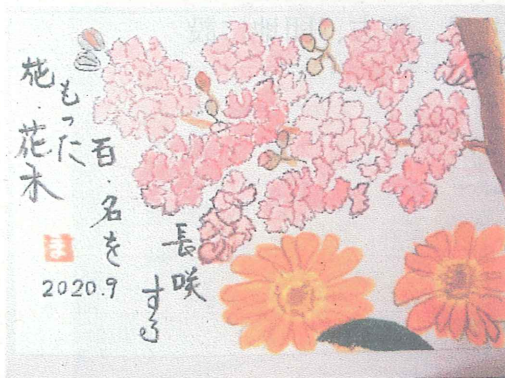 長咲
する
百・名を
もった
花・花木
ま
2020.9